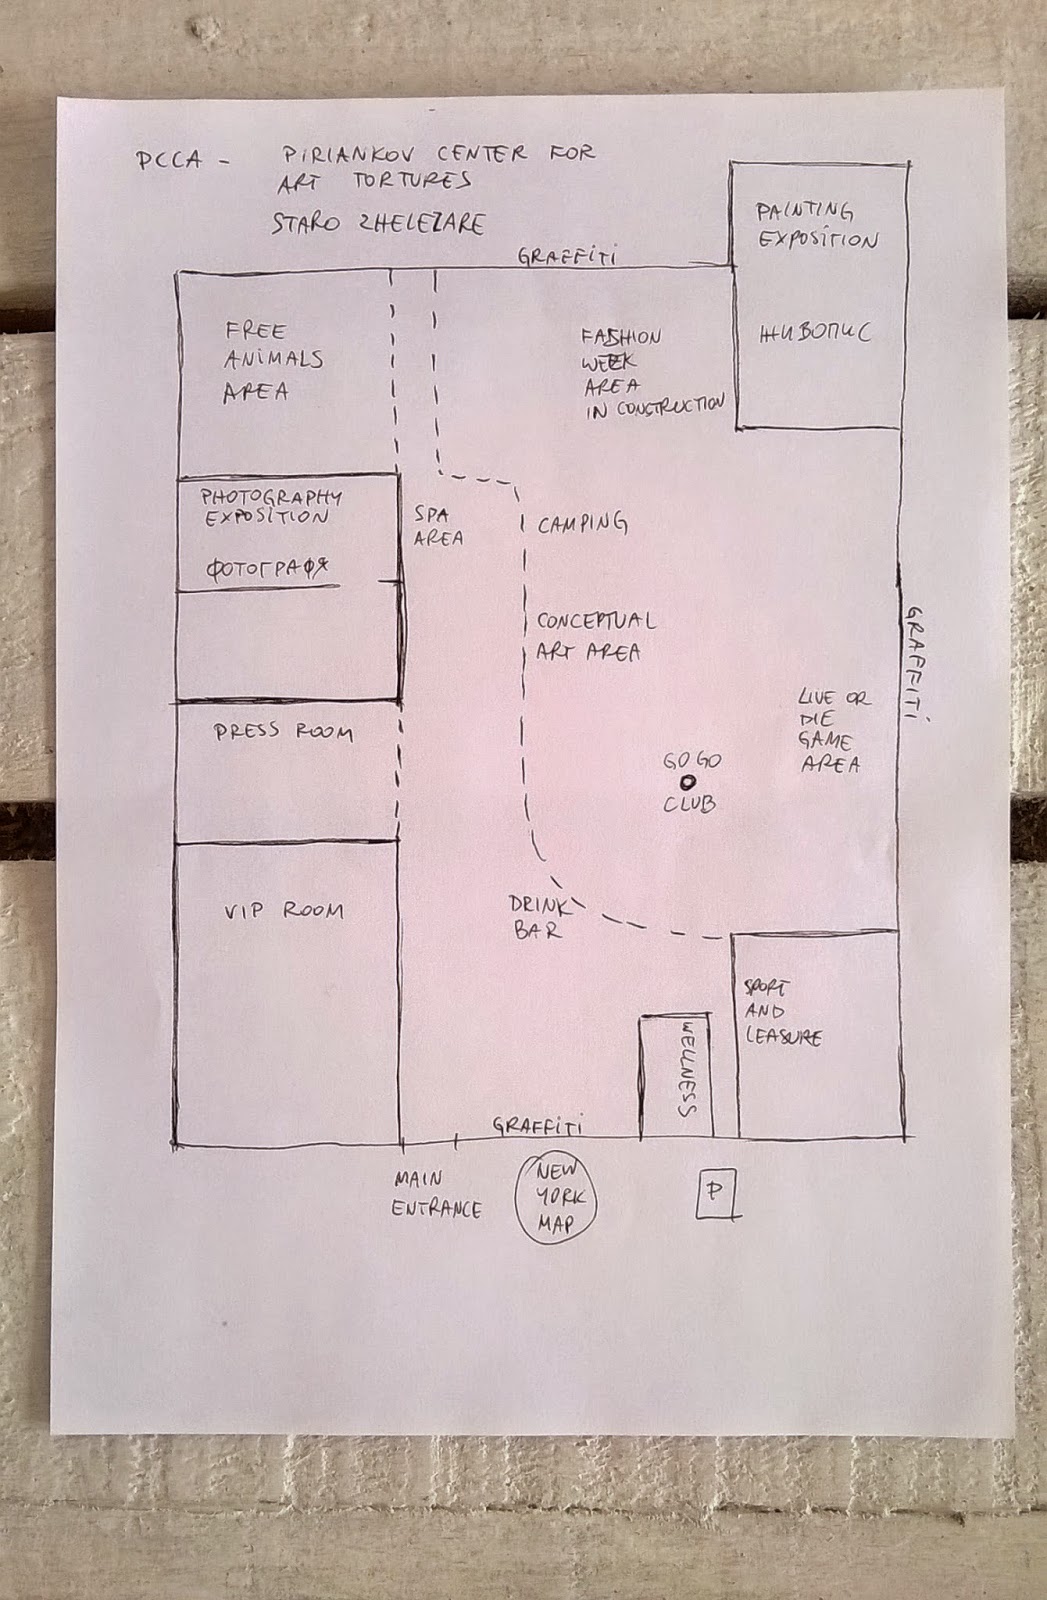 PCCA - PIRIANKOV CENTER FOR
ART TORTURES
STARO ZHELEZARE
GRAFFITI
PAINTING
EXPOSITION
ЖИВОПИС
FREE
ANIMALS
AREA
FASHION
WEEK
AREA
IN CONSTRUCTION
PHOTOGRAPHY
EXPOSITION
ФОТОГРАФЯ
SPA
AREA
CAMPING
CONCEPTUAL
ART AREA
GRAFFITI
LIVE OR
DIE
GAME
AREA
PRESS ROOM
GO GO
CLUB
VIP ROOM
DRINK
BAR
SPORT
AND
LEASURE
WELLNESS
GRAFFITI
MAIN
ENTRANCE
NEW
YORK
MAP
P